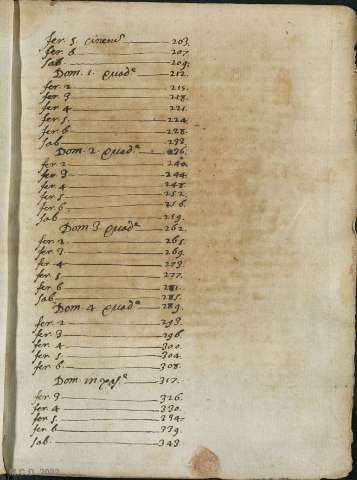 fer. 5. cineru͂ 203.
fer. 6 207.
sab. 209.
Dom. 1. quadᵉ 212.
fer. 2 215.
fer. 3 218.
fer. 4 221.
fer. 5. 224
fer. 6 228.
sab 232.
Dom. 2 quadᵉ 236.
fer. 2 240
fer. 3 244
fer. 4 248
fer. 5 252
fer. 6. 256.
sab 259.
Dom. 3 quadᵉ 262.
fer. 2. 265.
fer. 3 269.
fer 4 273
fer. 5 277.
fer. 6 281.
sab. 285.
Dom. 4 quadᵉ 289.
fer. 2 293.
fer. 3 296.
fer. 4 300.
fer. 5 304.
fer. 6. 308.
Dom. in pasᵉ 317.
fer. 3 326.
fer. 4 330.
fer. 5 334.
fer. 6 339.
sab. 343